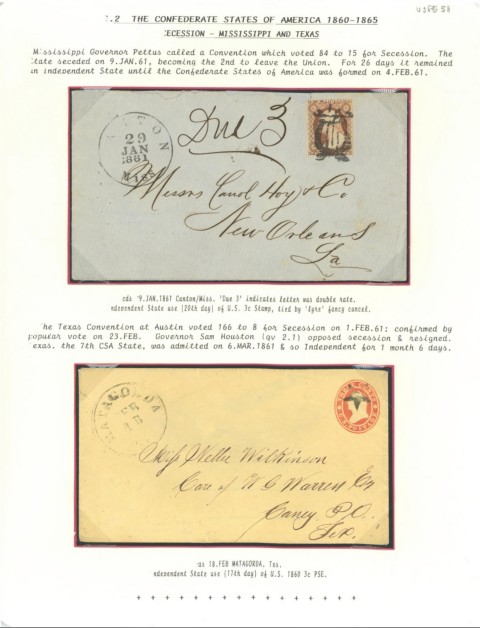 .2 THE CONFEDERATE STATES OF AMERICA 1860-1865
ECESSION - MISSISSIPPI AND TEXAS
Mississippi Governor Pettus called a Convention which voted 84 to 15 for Secession. The
State seceded on 9.JAN.61, becoming the 2nd to leave the Union. For 26 days it remained
an independent State until the Confederate States of America was formed on 4.FEB.61.
29
JAN
1861
Miss
Due 3
Messrs Carrol Hoy & Co
New Orleans
La
cds 29.JAN.1861 Canton/Miss. 'Due 3' indicates letter was double rate.
ndependent State use (20th day) of U.S. 3c Stamp, tied by 'lyre' fancy cancel.
he Texas Convention at Austin voted 166 to 8 for Secession on 1.FEB.61; confirmed by
popular vote on 23.FEB. Governor Sam Houston (qv 2.1) opposed secession & resigned.
Texas, the 7th CSA State, was admitted on 6.MAR.1861 & so Independent for 1 month 6 days.
MATAGORDA
FEB
18
Miss Nellie Wilkinson
Care of W C Warren Esq
Caney P.O.
Tex.
as 18.FEB MATAGORDA, Tas.
ndependent State use (17th day) of U.S. 1860 3c PSE.
+ + + + + + + + + + + + + + +